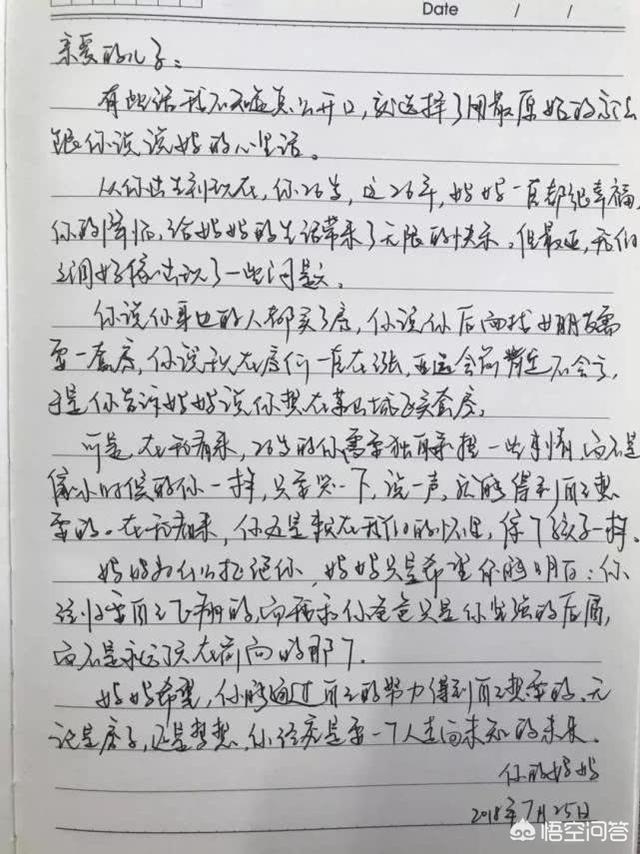 Date / /
亲爱的儿子：
有些话我不知道怎么开口，就选择了用最原始的方法
跟你说说妈的心里话。
从你出生到现在，你26岁，这26年，妈妈一直都很幸福，
你的降临，给妈妈的生活带来了无限的快乐。但最近，我们
之间好像出现了一些问题。
你说你身边的人都买了房，你说你后面找女朋友需
要一套房，你说现在房价一直在涨，亚运会前肯定不会亏，
于是你告诉妈妈说你想在买套房。
可是，在我看来，26岁的你需要独自承担一些事情，而不是
像小时候的你一样，只要哭一下，说一声，就能得到自己想
要的。在我看来，你还是赖在我们的怀里，像个孩子一样。
妈妈为什么拒绝你，妈妈只是希望你能明白：你
终归要自己飞翔的，而我和你爸爸只是你坚强的后盾，
而不是永远在前面的那个。
妈妈希望，你能通过自己的努力得到自己想要的，无
论是房子，还是梦想，你终究是要一个人走向未知的未来。
你的妈妈
2018年7月25日
悟空问答